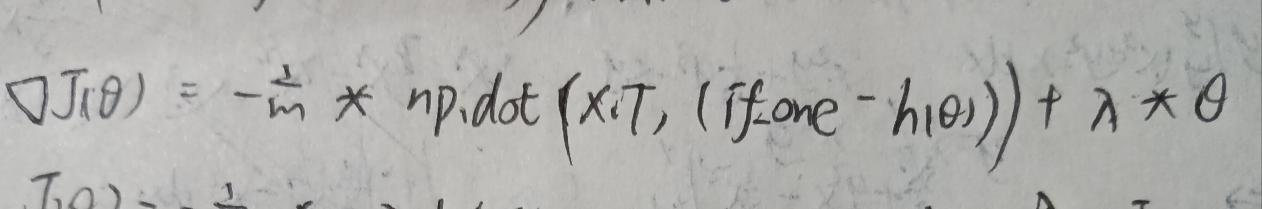 ∇J(θ) = -1/m * np.dot(X.T, (if_one - h(θ))) + λ * θ
J(θ) = - 1